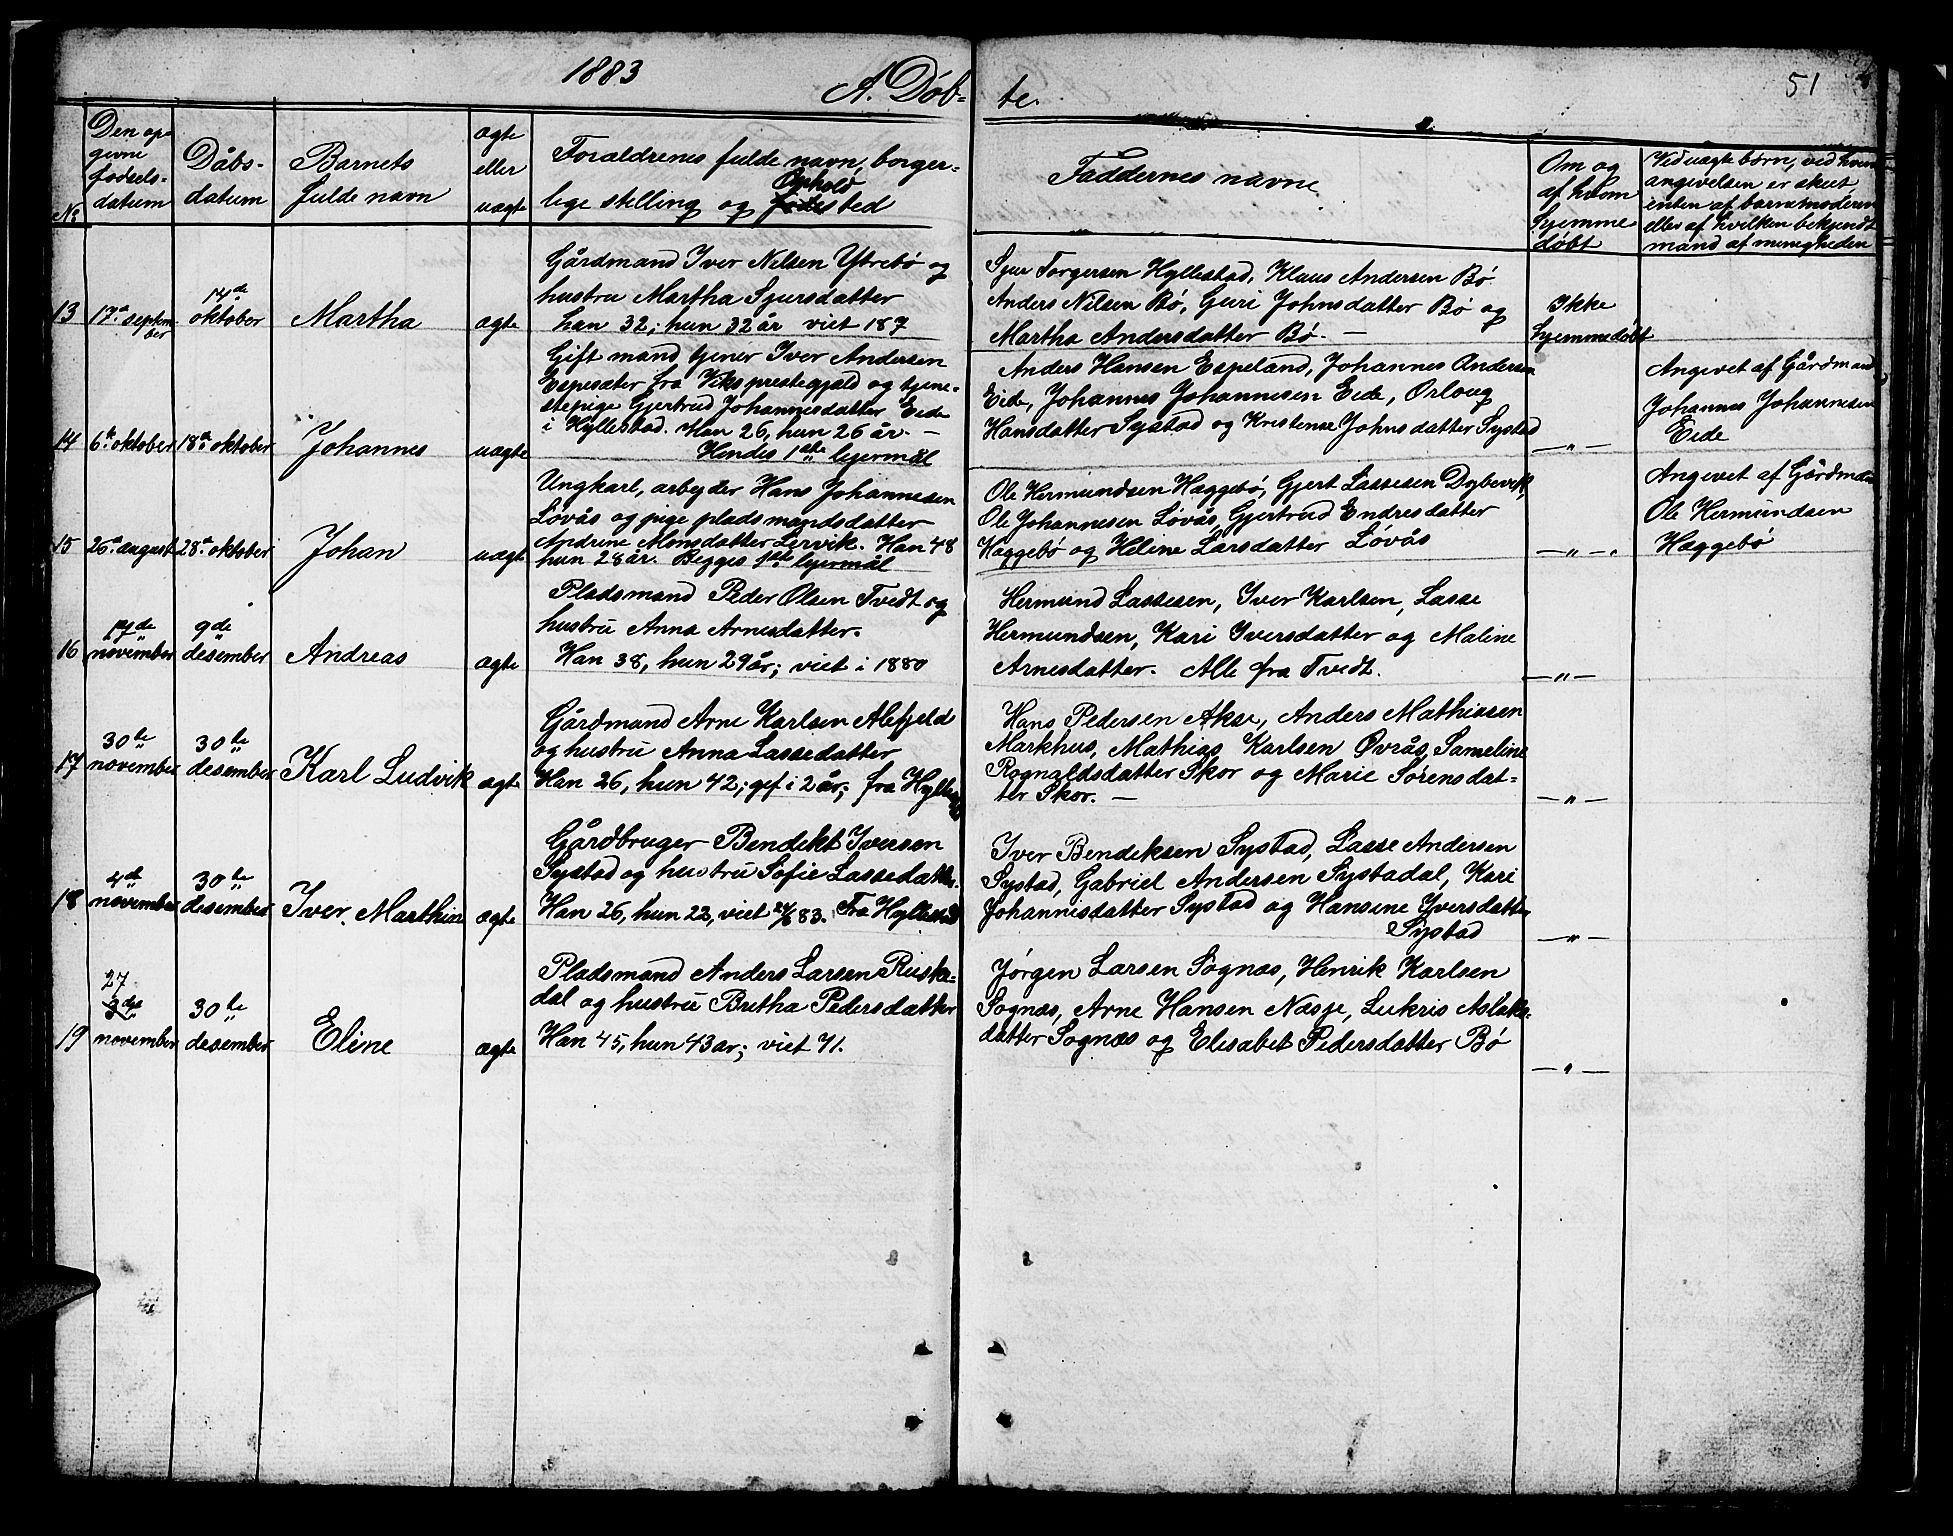 1883
A. Döb-
te.
51
No
Den op-
givne
fødsels-
datum
Dåbs-
datum
Barnets
fulde navn
ægte
eller
uægte
Forældrenes fulde navn, borger-
lige stilling og Ophold sted
Faddernes navne
Om og
af hvem
hjemme
døbt
Ved uægte børn, ved hvem
angivelsen er skeet,
enten af barnemoderen
eller af hvilken bekjendt
mand af menigheden
13
17de septem-
ber
14de
oktober
Martha
ægte
Gårdmand Iver Nilsen Ytrebø og
hustru Martha Sjursdatter
han 32; hun 32 år viet 187
Sjur Torgersen Hyllestad, Klaus Andersen Bø
Anders Nilsen Bø, Guri Johnsdatter Bø og
Martha Andersdatter Bø. —
Ikke
hjemmedøbt
14
6te oktober
18de oktober
Johannes
uægte
Gift mand tjener Iver Andersen
Espesæter fra Viks prestegjæld og tjene-
stepige Gjertrud Johannesdatter Eide
i Hyllestad. Han 26, hun 26 år. —
Hendes 1ste lejermål
Anders Hansen Espeland, Johannes Andersen
Eide, Johannes Johannesen Eide, Orloug
Hansdatter Systad og Kristense Johnsdatter Systad
— " —
Angivet af Gårdmand
Johannes Johannesen
Eide
15
26de august
28de oktober
Johan
uægte
Ungkarl, arbejder Hans Johannesen
Løvås og pige pladsmandsdatter
Andrine Monsdatter Lervik. Han 48
hun 28 år. Begges 1ste lejermål
Ole Hermundsen Hæggebø, Gjert Lassesen Dybevik,
Ole Johannesen Løvås, Gjertrud Endresdatter
Hæggebø og Heline Larsdatter Løvås
— " —
Angivet af Gårdman
Ole Hermundsen
Hæggebø
16
november
9de
desember
Andreas
ægte
Pladsmand Peder Olsen Tvedt og
hustru Anna Arnesdatter.
Han 38, hun 29 år; viet i 1880
Hermund Lassesen, Iver Karlsen, Lasse
Hermundsen, Kari Iversdatter og Maline
Arnesdatter. Alle fra Tvedt.
— " —
17
30te
november
30te
desember
Karl Ludvik
ægte
Gårdmand Arne Karlsen Alefjeld
og hustru Anna Lassedatter
Han 26, hun 42; gift i 2 år; fra Hyllestad
Hans Pedersen Akse, Anders Mathiassen
Markhus, Mathias Karlsen Øvrås, Sameline
Rognaldsdatter Skor og Marie Sørensdat-
ter Skor. —
— " —
18
4de
november
30te
desember
Iver Marthias
ægte
Gårdbruger Bendikt Iversen
Systad og hustru Sofie Lassedatter.
Han 26, hun 22, viet 24/6 83. Fra Hyllestad
Iver Bendiksen Systad, Lasse Andersen
Systad, Gabriel Andersen Systadal, Kari
Johannisdatter Systad og Hansine Iversdatter
Systad
— " —
19
27
november
30te
desember
Eline
ægte
Pladsmand Anders Larsen Riske-
dal og hustru Britha Pedersdatter
Han 45, hun 43 ar; viet 71.
Jørgen Larsen Sognæs, Henrik Karlsen
Sognæs, Arne Hansen Næsje, Lukris Aslaks-
datter Sognæs og Elisabet Pedersdatter Bø
— " —